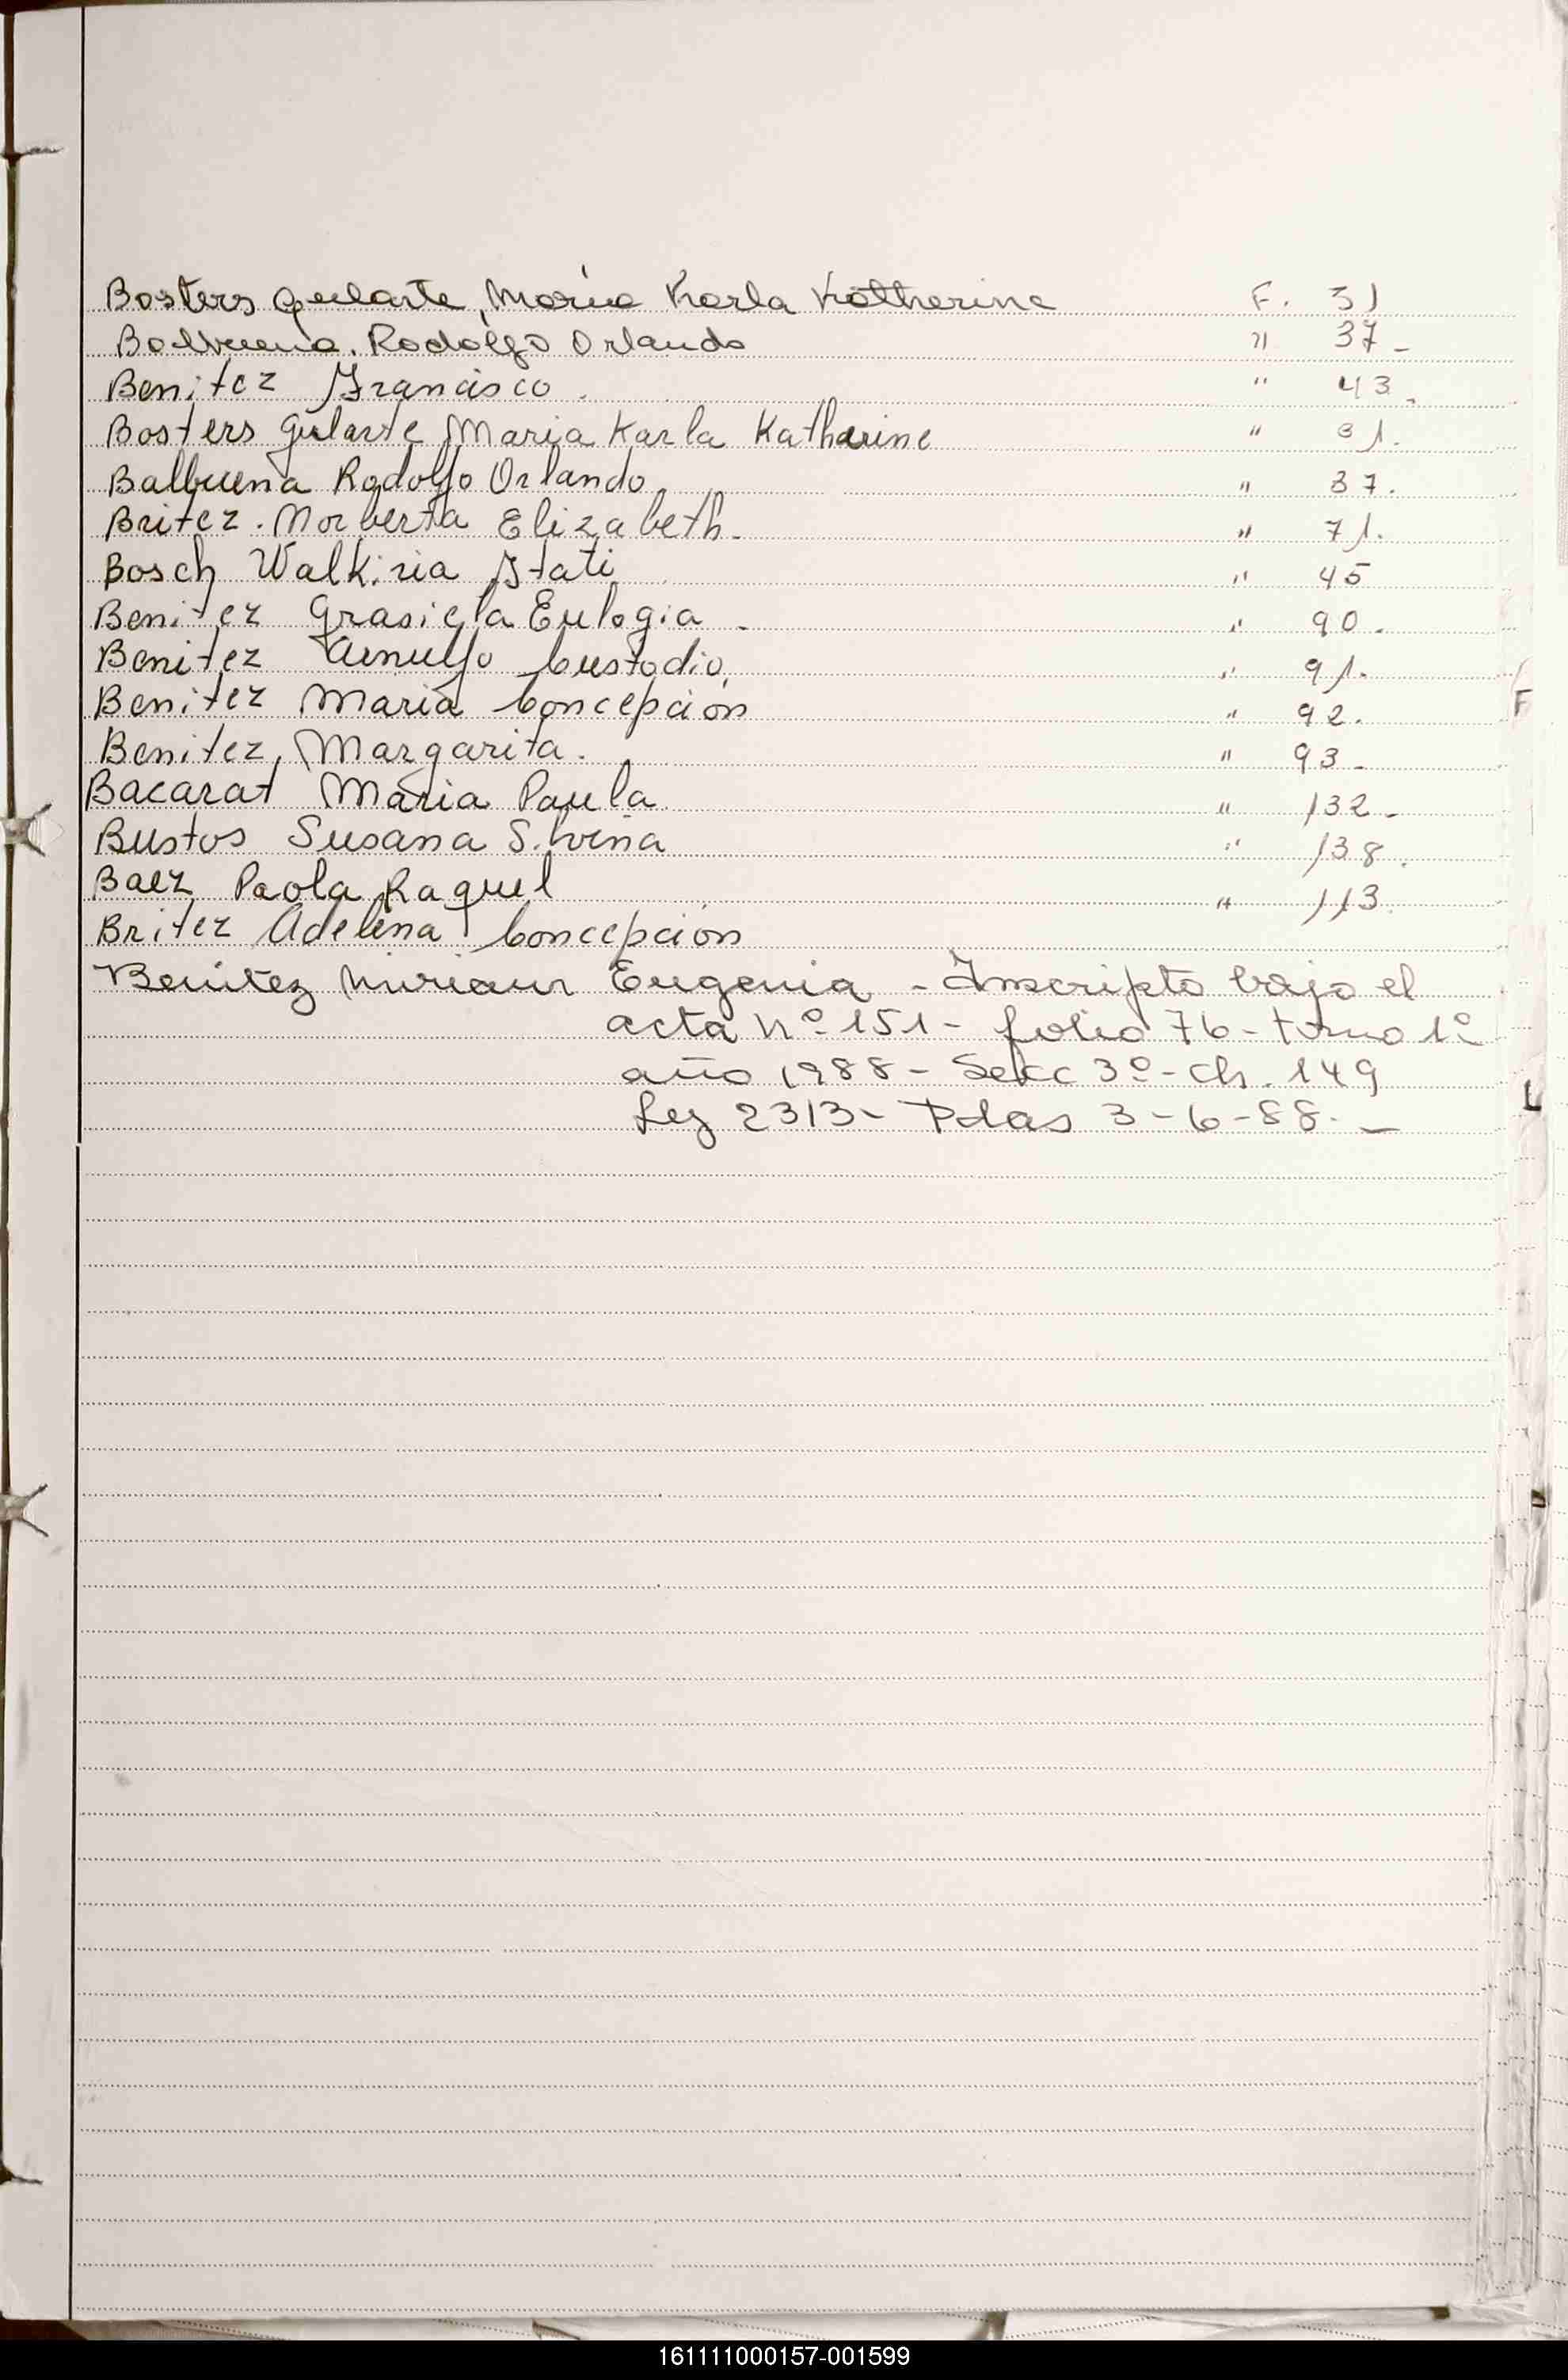 Bosters Gularte, María Karla Katherine F. 31
Balbuena. Rodolfo Orlando " 37 -
Benitez Francisco. " 43.
Bosters Gularte Maria Karla Katharine " 31.
Balbuena Rodolfo Orlando " 37.
Britez. Norberta Elizabeth. " 71.
Bosch Walkiria Itati " 45
Benitez Grasiela Eulogia. " 90.
Benitez Arnulfo Custodio. " 91.
Benitez Maria Concepción " 92.
Benitez, Margarita. " 93 -
Bacarat Maria Paula " 132 -
Bustos Susana Silvina " 138.
Baez Paola Raquel " 113.
Britez Adelina Concepción
Benitez Miriam Eugenia - Inscripto bajo el
acta Nº 151 - folio 76 - tomo 1º
año 1988 - Secc 3º - Ch. 149
Ley 2313 - Pdas 3-6-88. -
F
L
161111000157-001599